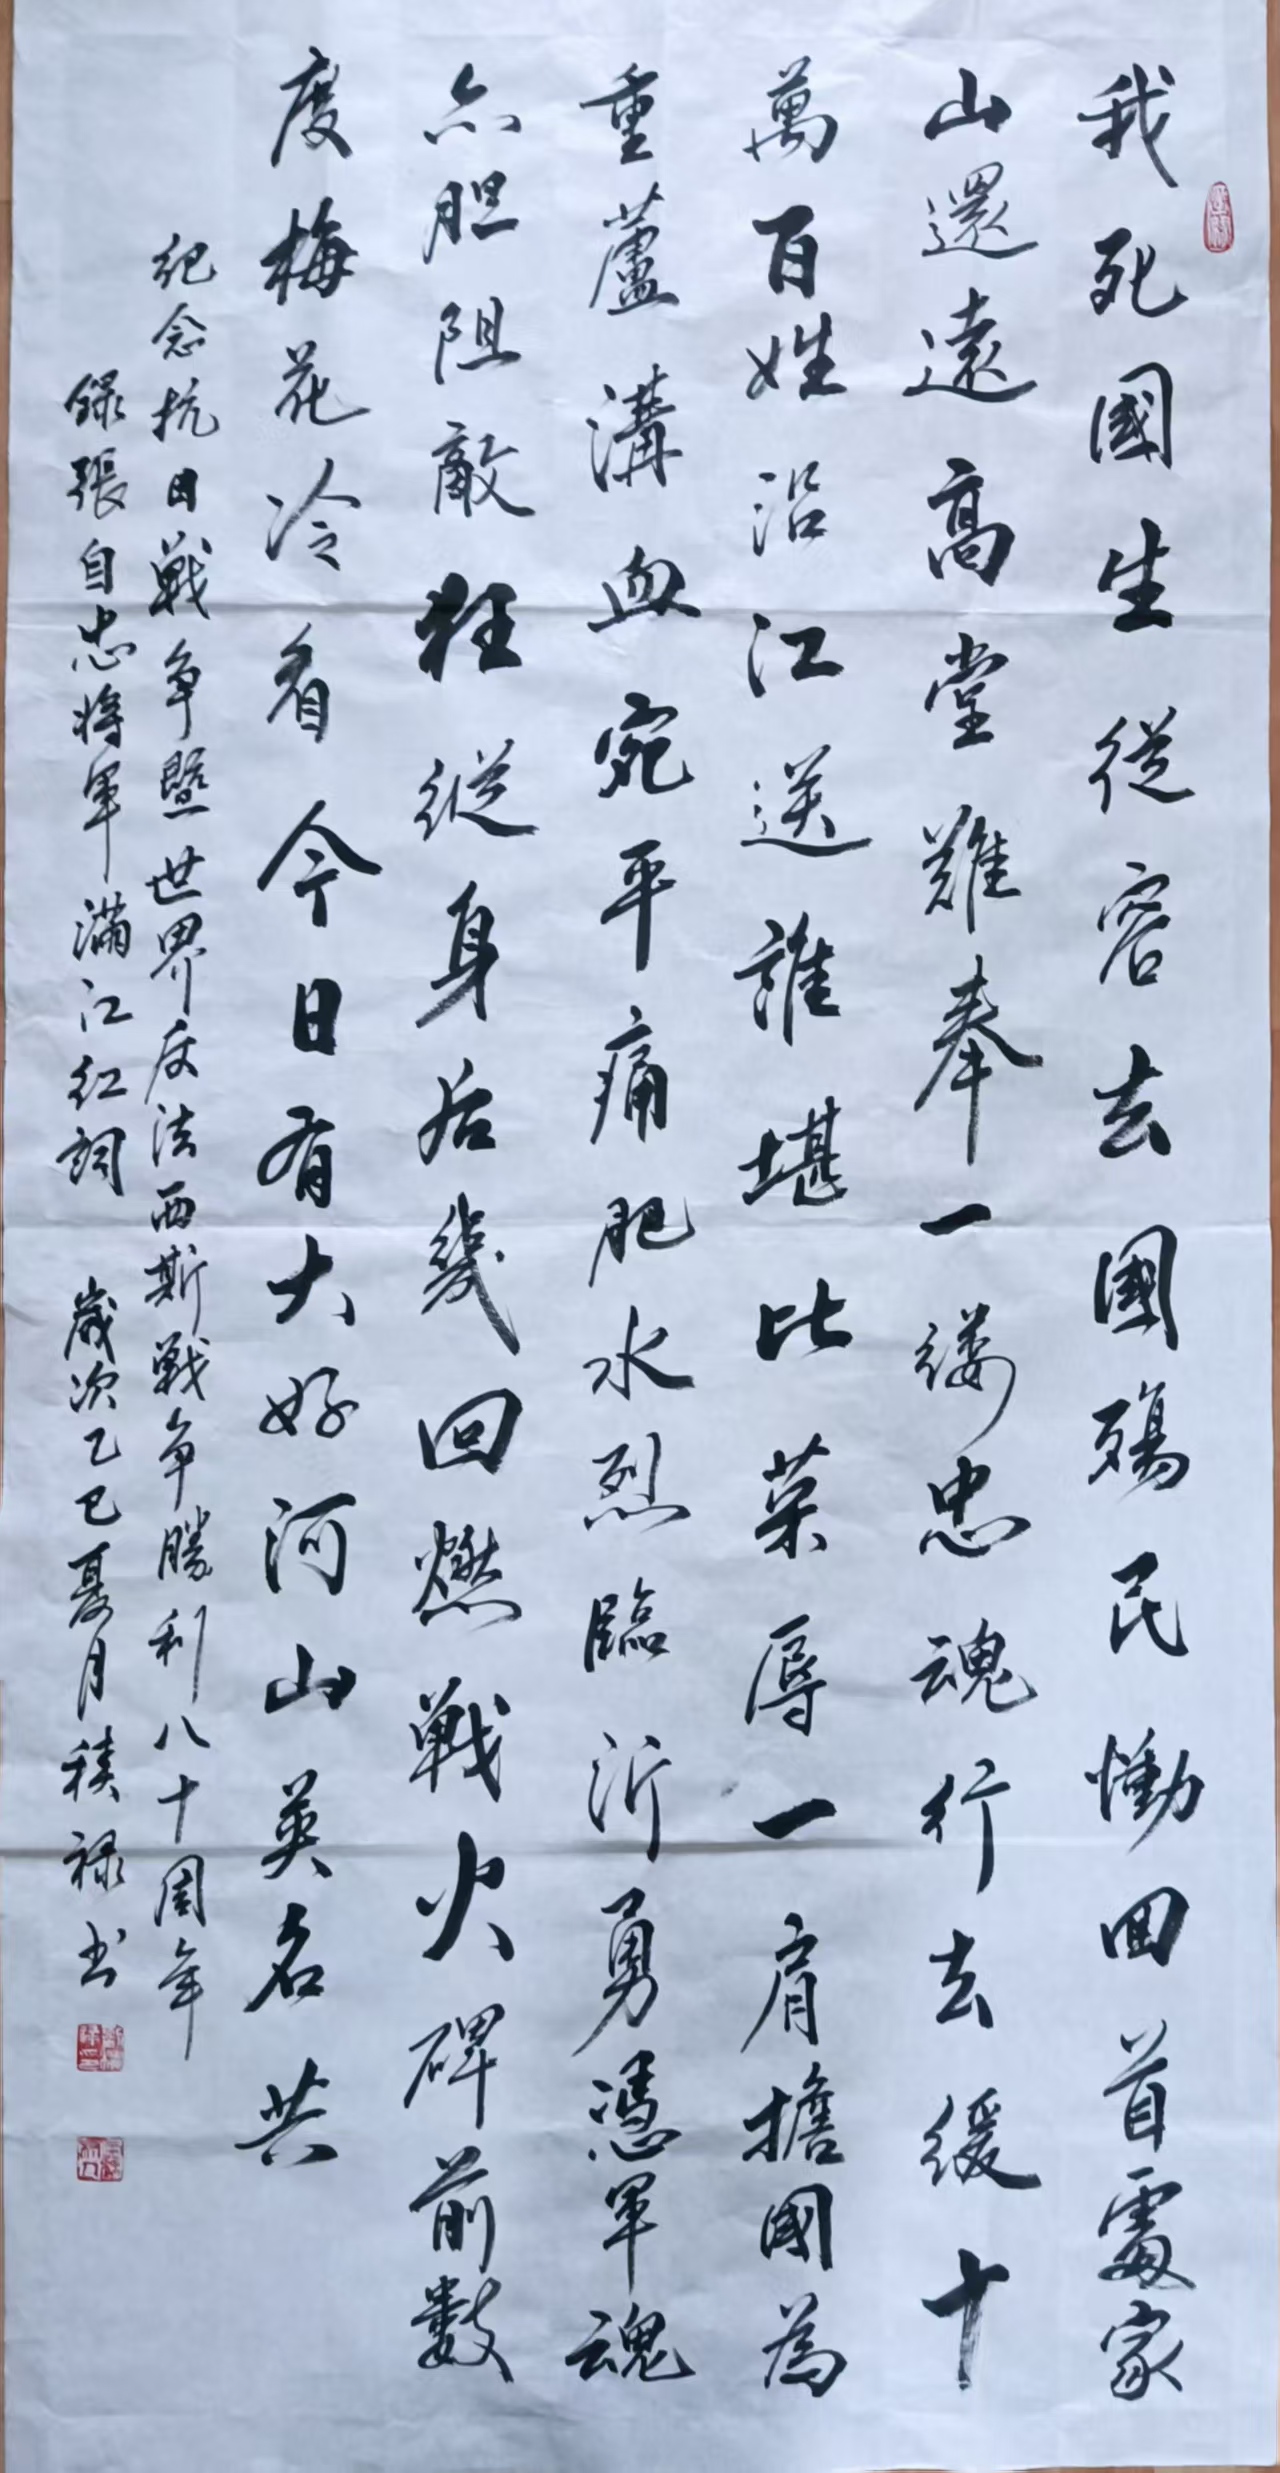 我死國生從容去國殤民慟回首處家
山還遠高堂難奉一縷忠魂行去緩十
萬百姓沿江送誰堪比榮辱一肩擔國為
重蘆溝血宛平痛肥水烈臨沂勇憑軍魂
忠胆阻敵狂縱身后幾回燃戰火碑前數
度梅花冷看今日有大好河山英名共
紀念抗日戰争暨世界反法西斯戰争勝利八十周年
錄張自忠將軍滿江紅詞 歲次乙巳夏月積祿书